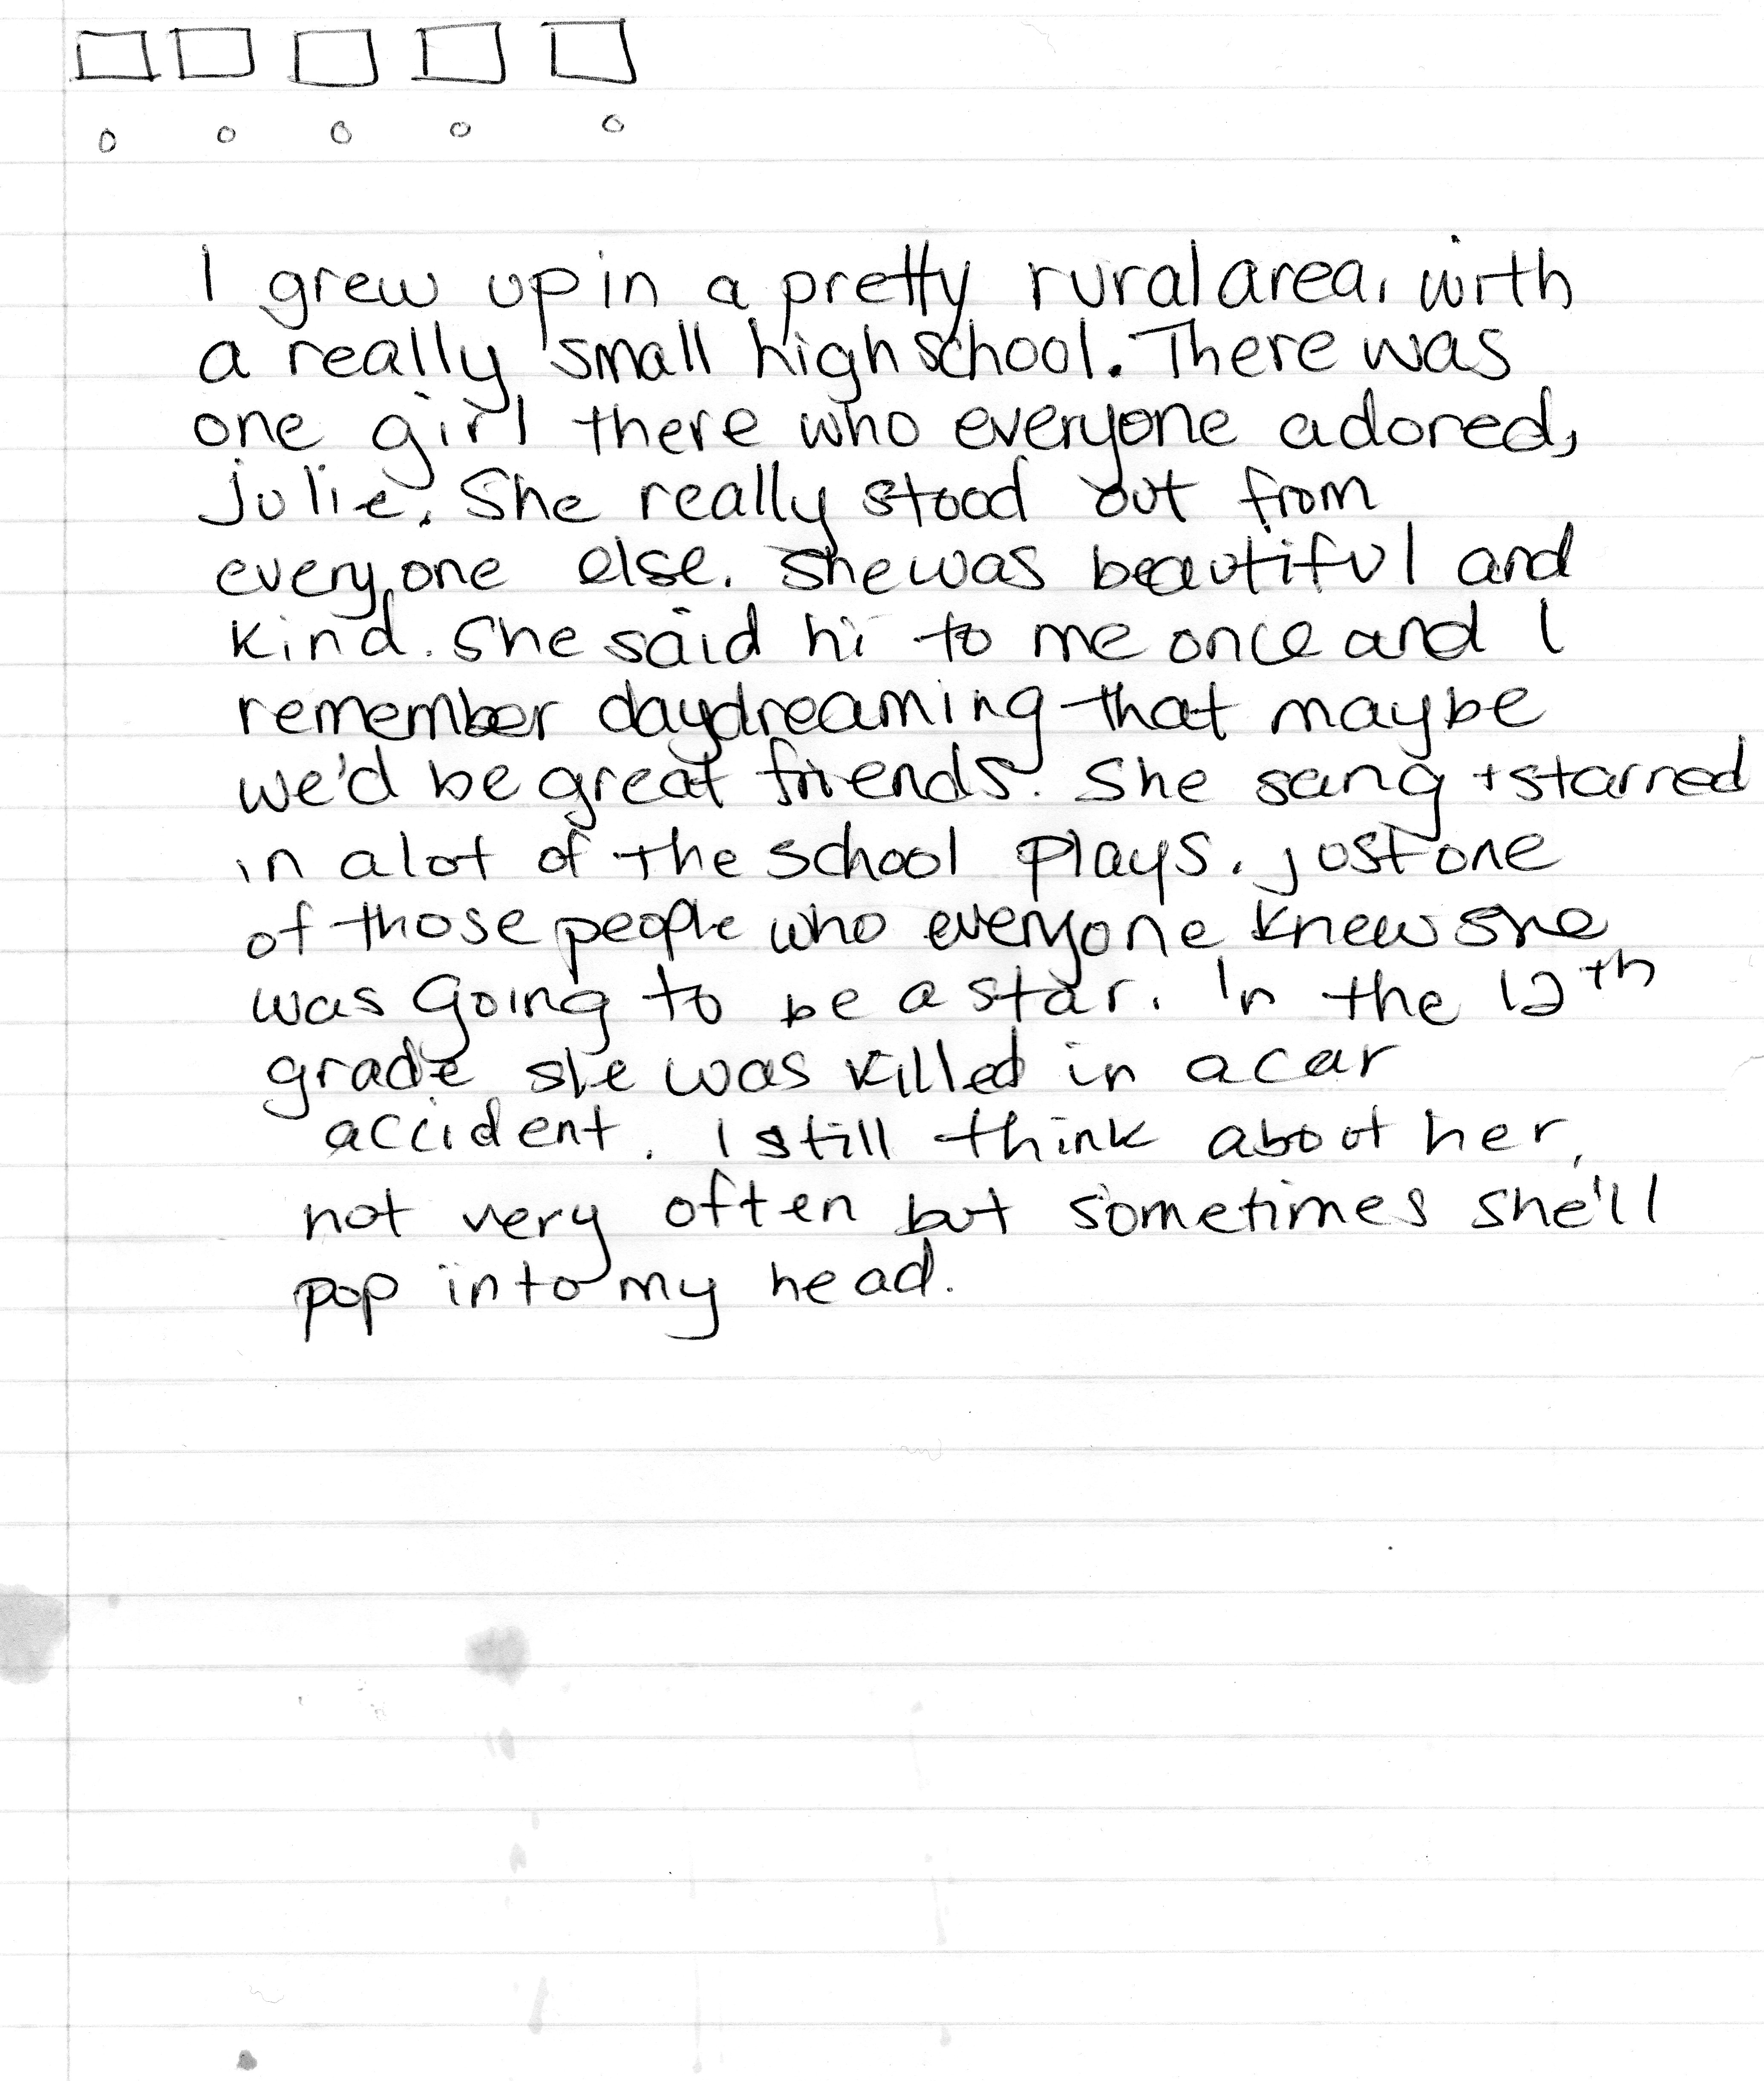 I grew up in a pretty rural area, with
a really small high school. There was
one girl there who everyone adored,
Julie. She really stood out from
everyone else. She was beautiful and
kind. She said hi to me once and I
remember daydreaming that maybe
we'd be great friends. She sang + starred
in a lot of the school plays. Just one
of those people who everyone knew she
was going to be a star. In the 12th
grade she was killed in a car
accident. I still think about her,
not very often but sometimes she'll
pop into my head.